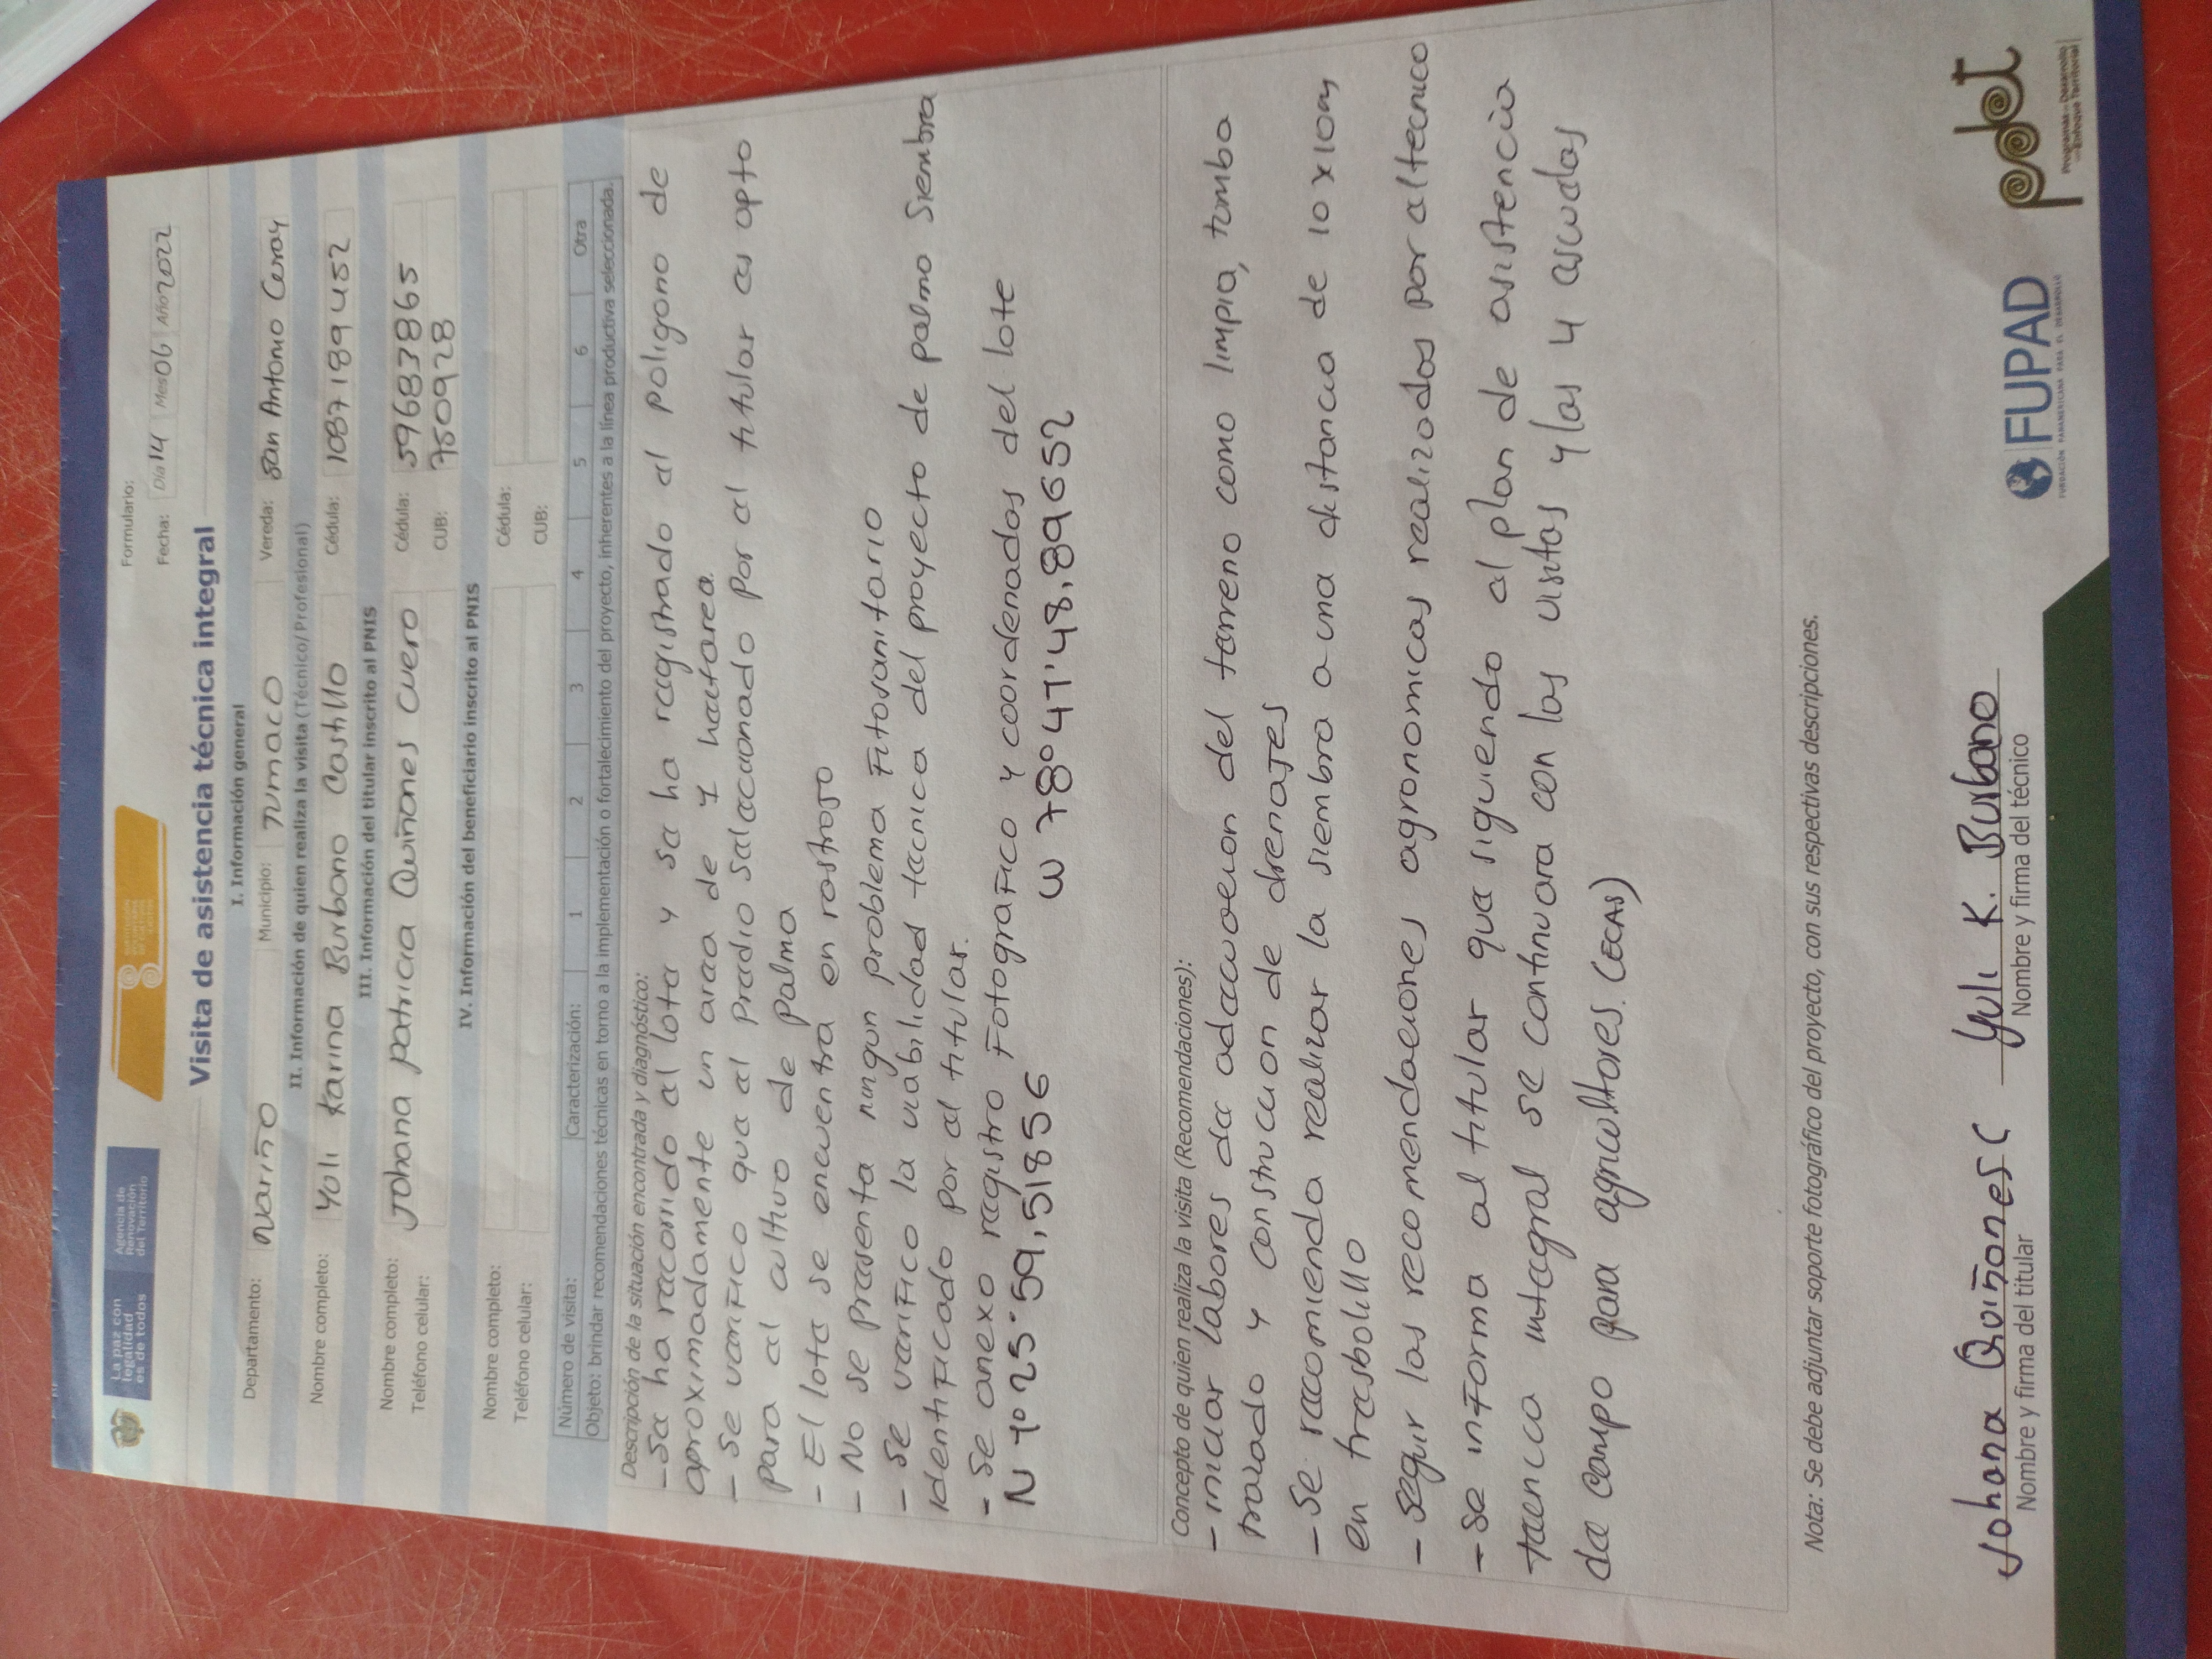 La paz con
legalidad
es de todos
Agencia de
Renovación
del Territorio
Formulario:
Fecha: Día 14 Mes 06 Año 2022
Visita de asistencia técnica integral
I. Información general
Departamento: Nariño Municipio: Tumaco Vereda: San Antonio Curay
II. Información de quien realiza la visita (Técnico/Profesional)
Nombre completo: Yuli Karina Burbano Castillo Cédula: 1087189452
III. Información del titular inscrito al PNIS
Nombre completo: Johana patricia Quiñones Cuero Cédula: 59683865
Teléfono celular: CUB: 750928
IV. Información del beneficiario inscrito al PNIS
Nombre completo: Cédula:
Teléfono celular: CUB:
Número de visita: Caracterización: 1 2 3 4 5 6 Otra
Objeto: brindar recomendaciones técnicas en torno a la implementación o fortalecimiento del proyecto, inherentes a la línea productiva seleccionada.
Descripción de la situación encontrada y diagnóstico:
- Se ha recorrido el lote y se ha registrado el poligono de
aproximadamente un area de 1 hectarea.
- Se verifico que el predio seleccionado por el titular es apto
para el cultivo de palma
- El lote se encuentra en rastrojo
- No se presenta ningun problema Fitosanitario
- Se verifico la viabilidad tecnica del proyecto de palma Siembra
identificado por el titular.
- Se anexo registro Fotografico y coordenadas del lote
N 1° 25' 59,51856 W 78° 41' 48,89652
Concepto de quien realiza la visita (Recomendaciones):
- iniciar labores de adecuacion del terreno como limpia, tumba
trazado y construcion de drenajes
- Se recomienda realizar la siembra a una distancia de 10x10m
en tresbolillo
- seguir las recomendaciones agronomicas realizadas por el tecnico
- Se informa al titular que siguiendo el plan de asistencia
tecnica integral se continuara con las visitas y las 4 escuelas
de campo para agricultores. (ECAS)
Nota: Se debe adjuntar soporte fotográfico del proyecto, con sus respectivas descripciones.
Johana Quiñones C Yuli K. Burbano
Nombre y firma del titular Nombre y firma del técnico
FUPAD
FUNDACIÓN PANAMERICANA PARA EL DESARROLLO
pdet
Programas de Desarrollo
con Enfoque Territorial